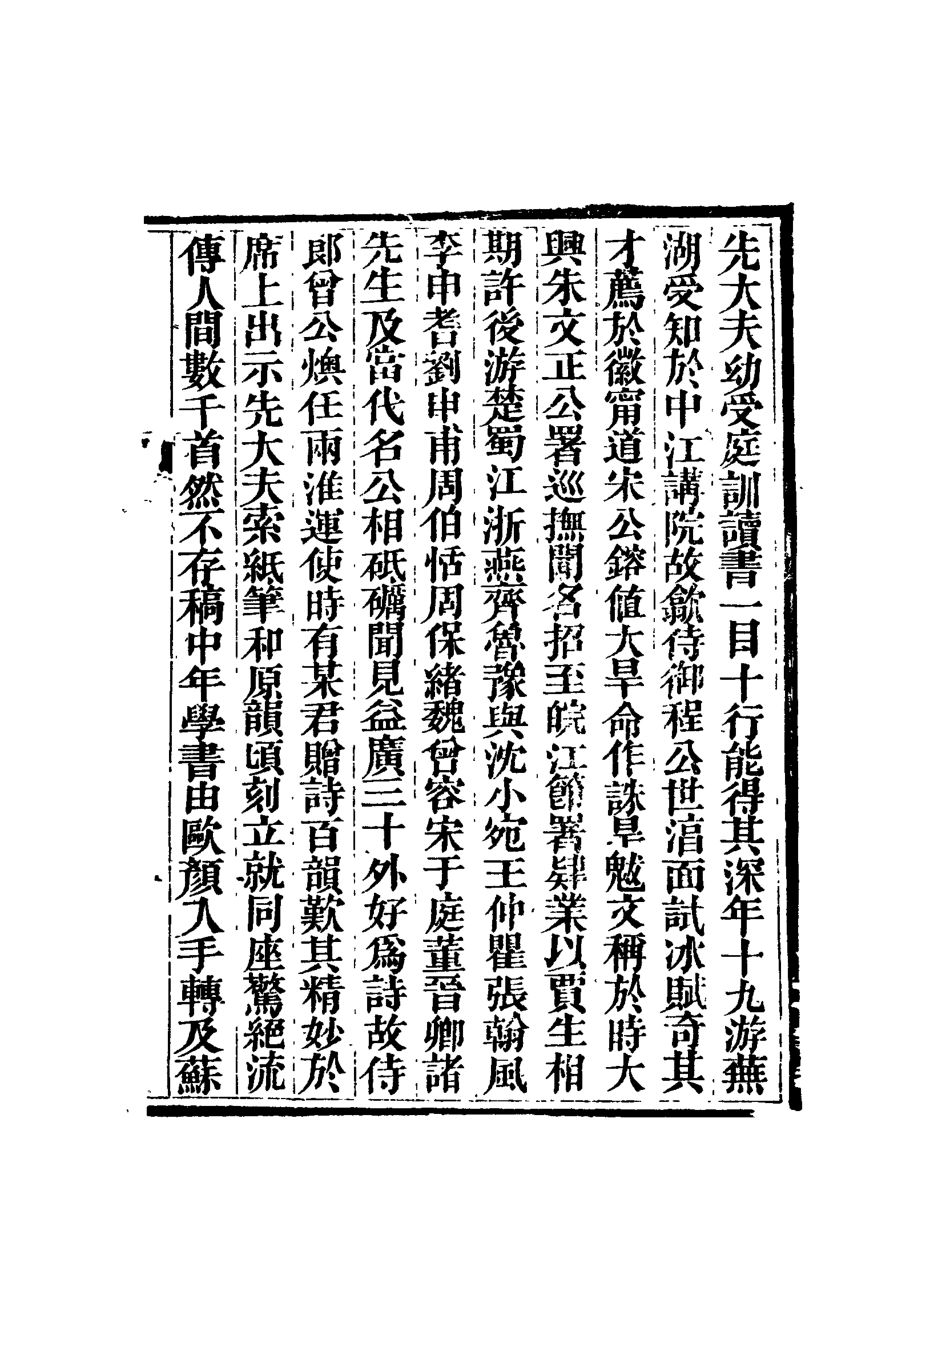 先大夫幼受庭訓讀書一目十行能得其深年十九游蕪
湖受知於中江講院故歙侍御程公世淯面試冰賦奇其
才薦於徽甯道宋公鎔值大旱命作誅旱魃文稱於時大
興朱文正公署巡撫聞名招至皖江節署肄業以賈生相
期許後游楚蜀江浙燕齊魯豫與沈小宛王仲瞿張翰風
李申耆劉申甫周伯恬周保緒魏曾容宋于庭董晉卿諸
先生及當代名公相砥礪聞見益廣三十外好爲詩故侍
郎曾公燠任兩淮運使時有某君贈詩百韻歎其精妙於
席上出示先大夫索紙筆和原韻頃刻立就同座驚絕流
傳人間數千首然不存稿中年學書由歐顏入手轉及蘇